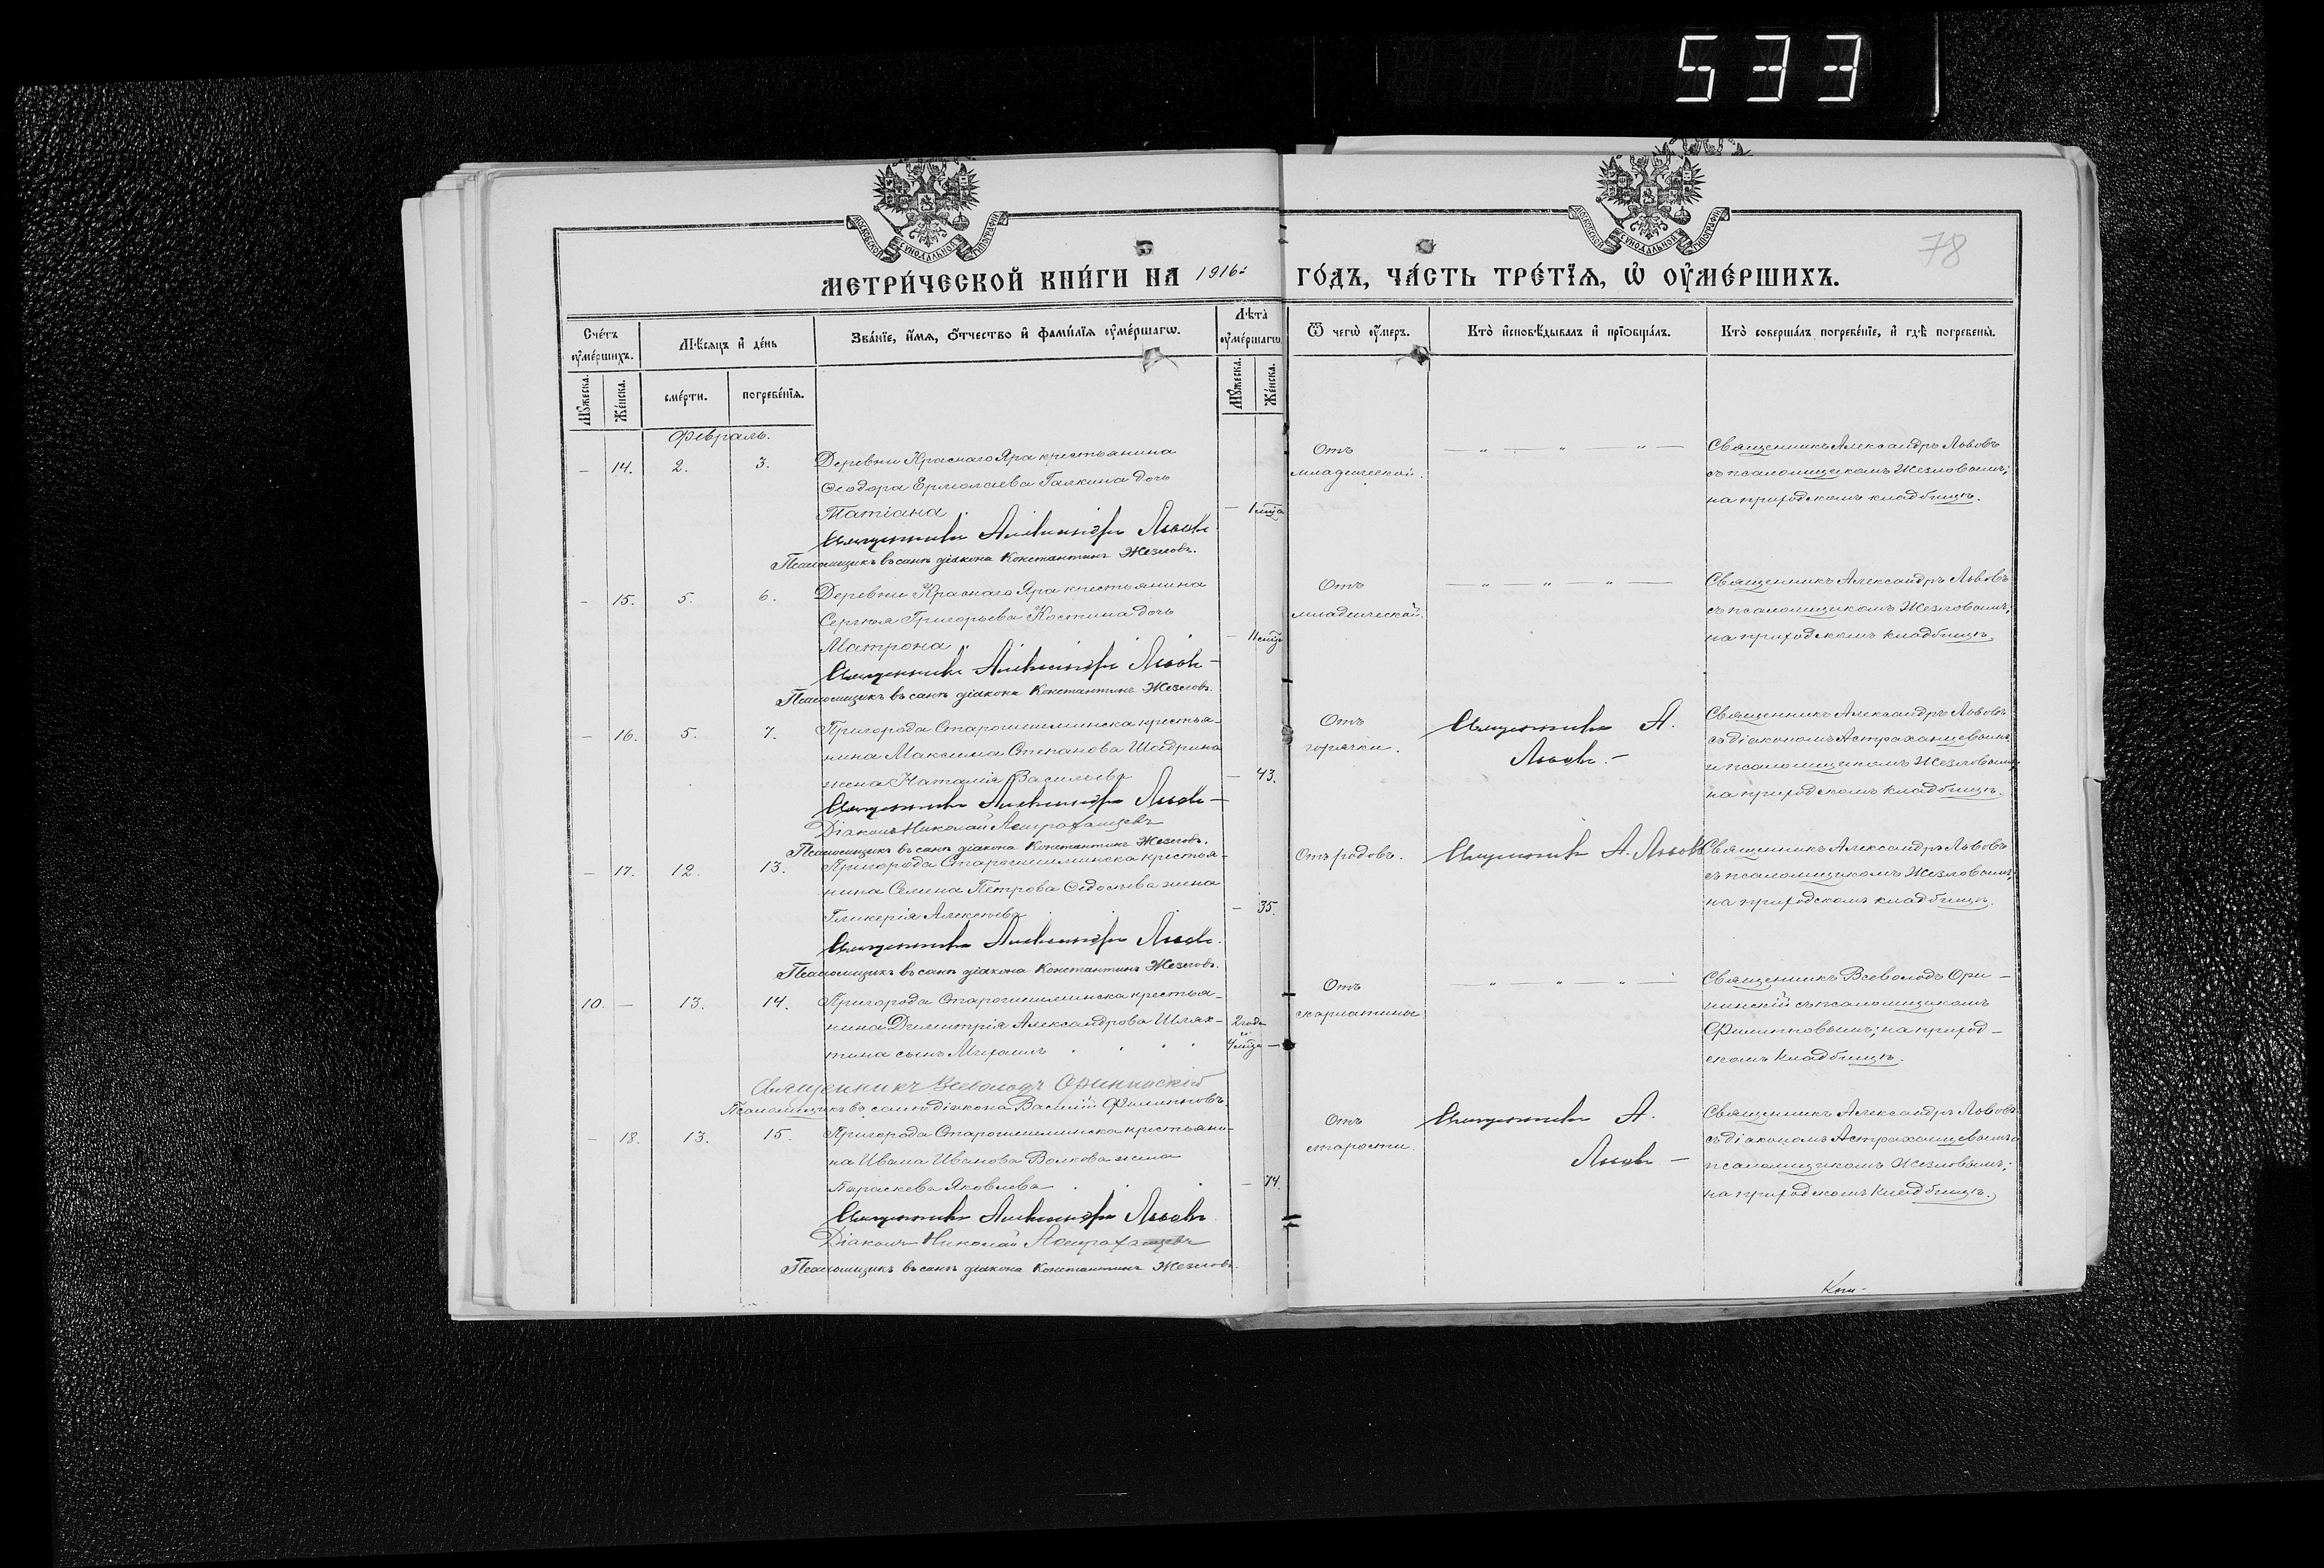 533
МОСКОВСКОЙ СѴНОДАЛЬНОЙ ТИПОГРАФІИ
МОСКОВСКОЙ СѴНОДАЛЬНОЙ ТИПОГРАФІИ
78
МЕТРИ́ЧЕСКОЙ КНИ́ГИ НА 1916й ГО́ДЪ, ЧА́СТЬ ТРЕ́ТЇѦ, Ѡ҆ ОУ҆МЕ́РШИХЪ.
Сче́тъ оу҆ме́ршихъ.
Мꙋ́жеска.
Же́нска.
Мѣ́сѧцъ и҆ де́нь
сме́рти.
погребе́нїѧ.
Зва́нїе, и҆́мѧ, ѻ҆́тчество и҆ фами́лїѧ оу҆ме́ршагѡ.
Лѣ́та̀ оу҆ме́ршагѡ.
Мꙋ́жеска.
Же́нска.
Ѿ чегѡ̀ оу҆́меръ.
Кто̀ и҆сповѣ́дывалъ и҆ прїѡбща́лъ.
Кто̀ соверша́лъ погребе́нїе, и҆ гдѣ̀ погребены̀.
Февраль.
– 14. 2. 3. Деревни Краснаго Яра крестьянина
Ѳеодора Ермолаева Галкина дочь
Татіана – 1 мца
Священникъ Александръ Львовъ
Псаломщикъ въ санѣ діакона Константинъ Жезловъ.
Отъ
младенческой.
Священникъ Александръ Львовъ
съ псаломщикомъ Жезловымъ;
на приходскомъ кладбищѣ.
– 15. 5. 6. Деревни Краснаго Яра крестьянина
Сергѣя Григорьева Костина дочь
Матрона –
Священникъ Александръ Львовъ
Псаломщикъ въ санѣ діакона Константинъ Жезловъ.
Отъ
младенческой.
Священникъ Александръ Львовъ
съ псаломщикомъ Жезловымъ;
на приходскомъ кладбищѣ.
– 16. 5. 7. Пригорода Старошешминска крестья-
нина Максима Степанова Шадрина
жена Наталія Васильева – 43.
Священникъ Александръ Львовъ
Діаконъ Николай Астраханцевъ
Псаломщикъ въ санѣ діакона Константинъ Жезловъ.
Отъ
горячки.
Священникъ А.
Львовъ.
Священникъ Александръ Львовъ
съ діакономъ Астраханцевымъ
и псаломщикомъ Жезловымъ;
на приходскомъ кладбищѣ.
– 17. 12. 13. Пригорода Старошешминска крестья-
нина Семена Петрова Ѳедосѣева жена
Гликерія Алексѣева – 35.
Священникъ Александръ Львовъ.
Псаломщикъ въ санѣ діакона Константинъ Жезловъ.
Отъ родовъ.
Священникъ А. Львовъ
Священникъ Александръ Львовъ
съ псаломщикомъ Жезловымъ;
на приходскомъ кладбищѣ.
10. – 13. 14. Пригорода Старошешминска крестья-
нина Димитрія Александрова Шлях-
тина сынъ Михаилъ 2 года и 4 мца –
Священникъ Всеволодъ Оринин­скій
Псаломщикъ въ санѣ діакона Василій Филипповъ.
Отъ
скарлатины
Священникъ Всеволодъ Ори-
нинскій съ псаломщикомъ
Филипповымъ; на приход-
скомъ кладбищѣ.
– 18. 13. 15. Пригорода Старошешминска крестьяни-
на Ивана Иванова Волкова жена
Параскева Яковлева – 74.
Священникъ Александръ Львовъ
Діаконъ Николай Астраханцевъ
Псаломщикъ въ санѣ діакона Константинъ Жезловъ.
Отъ
старости.
Священникъ А.
Львовъ
Священникъ Александръ Львовъ
съ діакономъ Астраханцевымъ и
псаломщикомъ Жезловымъ;
на приходскомъ кладбищѣ.